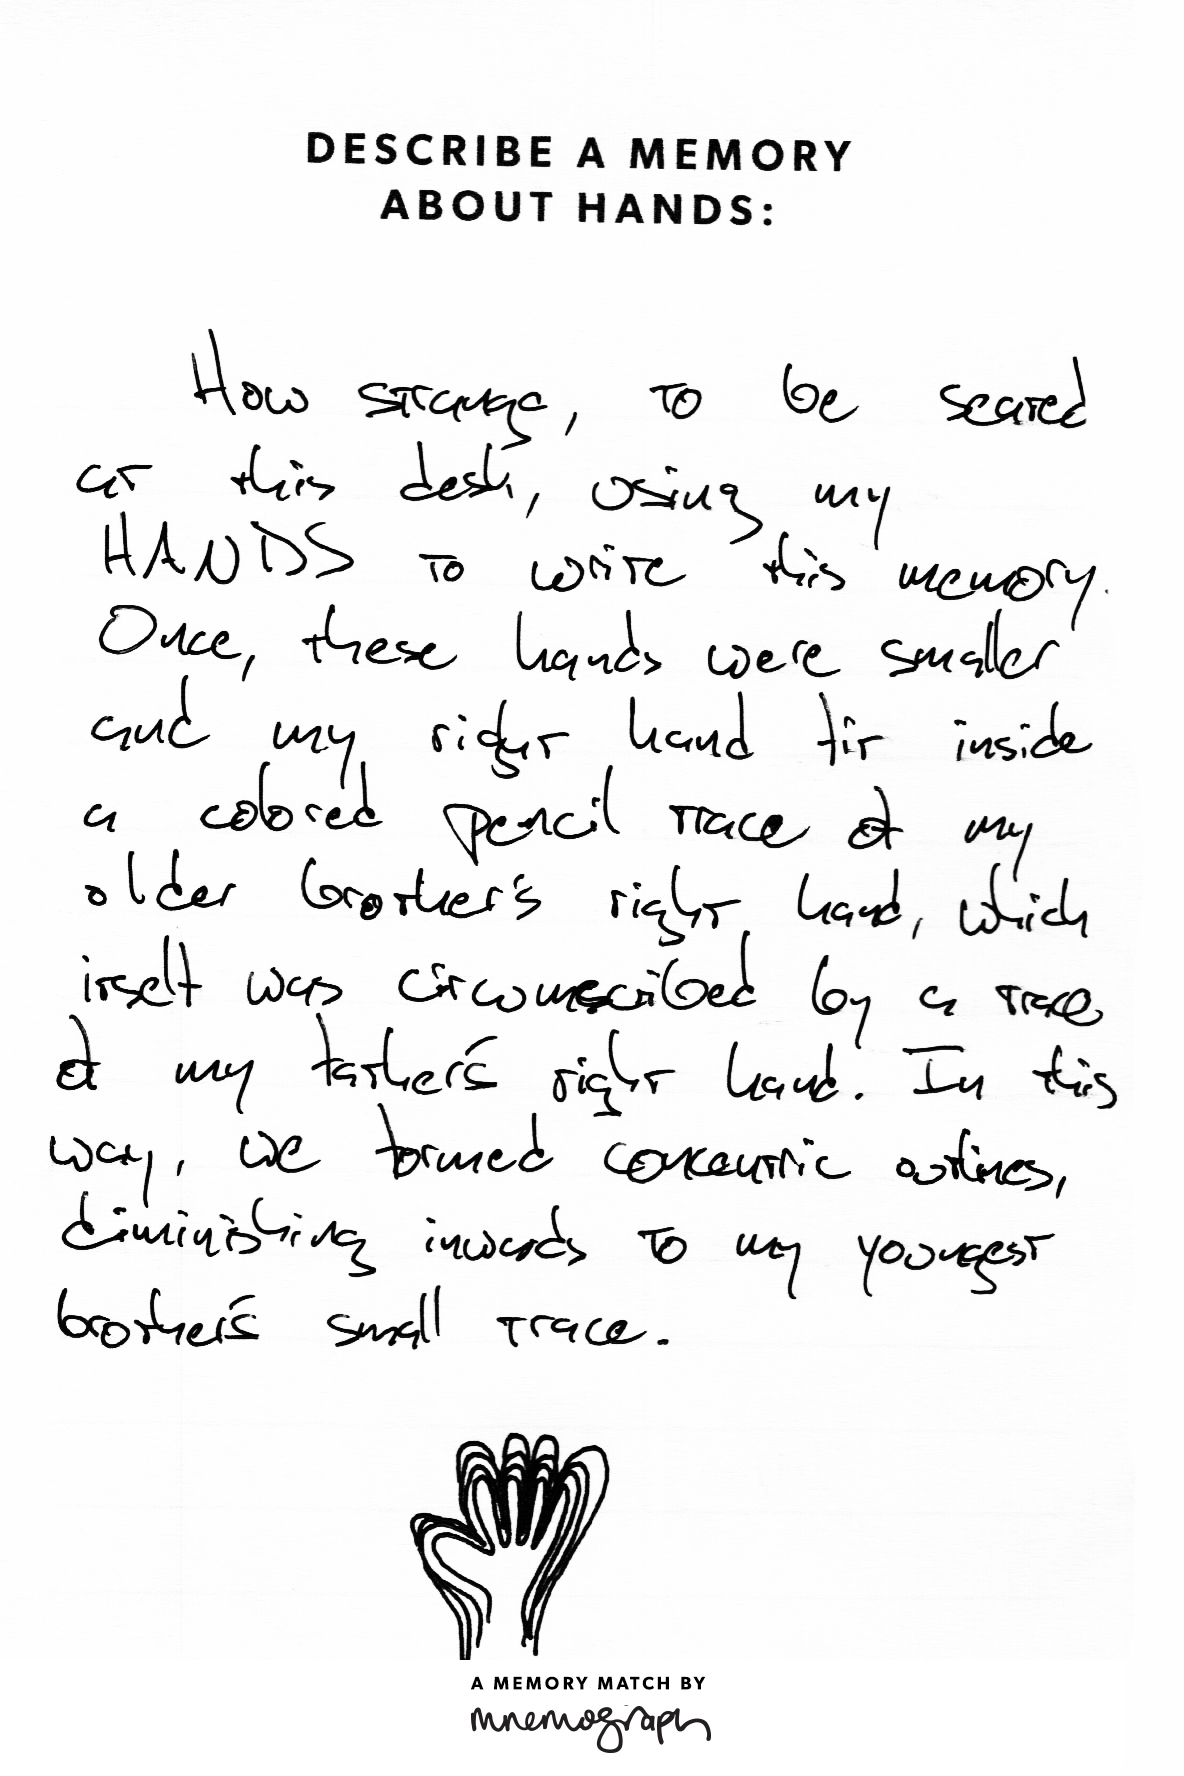 DESCRIBE A MEMORY
ABOUT HANDS:
How strange, to be seated
at this desk, using my
HANDS to write this memory.
Once, these hands were smaller
and my right hand fit inside
a colored pencil trace of my
older brother's right hand, which
itself was circumscribed by a trace
of my father's right hand. In this
way, we formed concentric outlines,
diminishing inwards to my youngest
brother's small trace.
A MEMORY MATCH BY
mnemograph